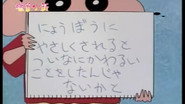 にょうぼうに
やさしくされると
ついなにかわるい
ことをしたんじゃ
ないかと